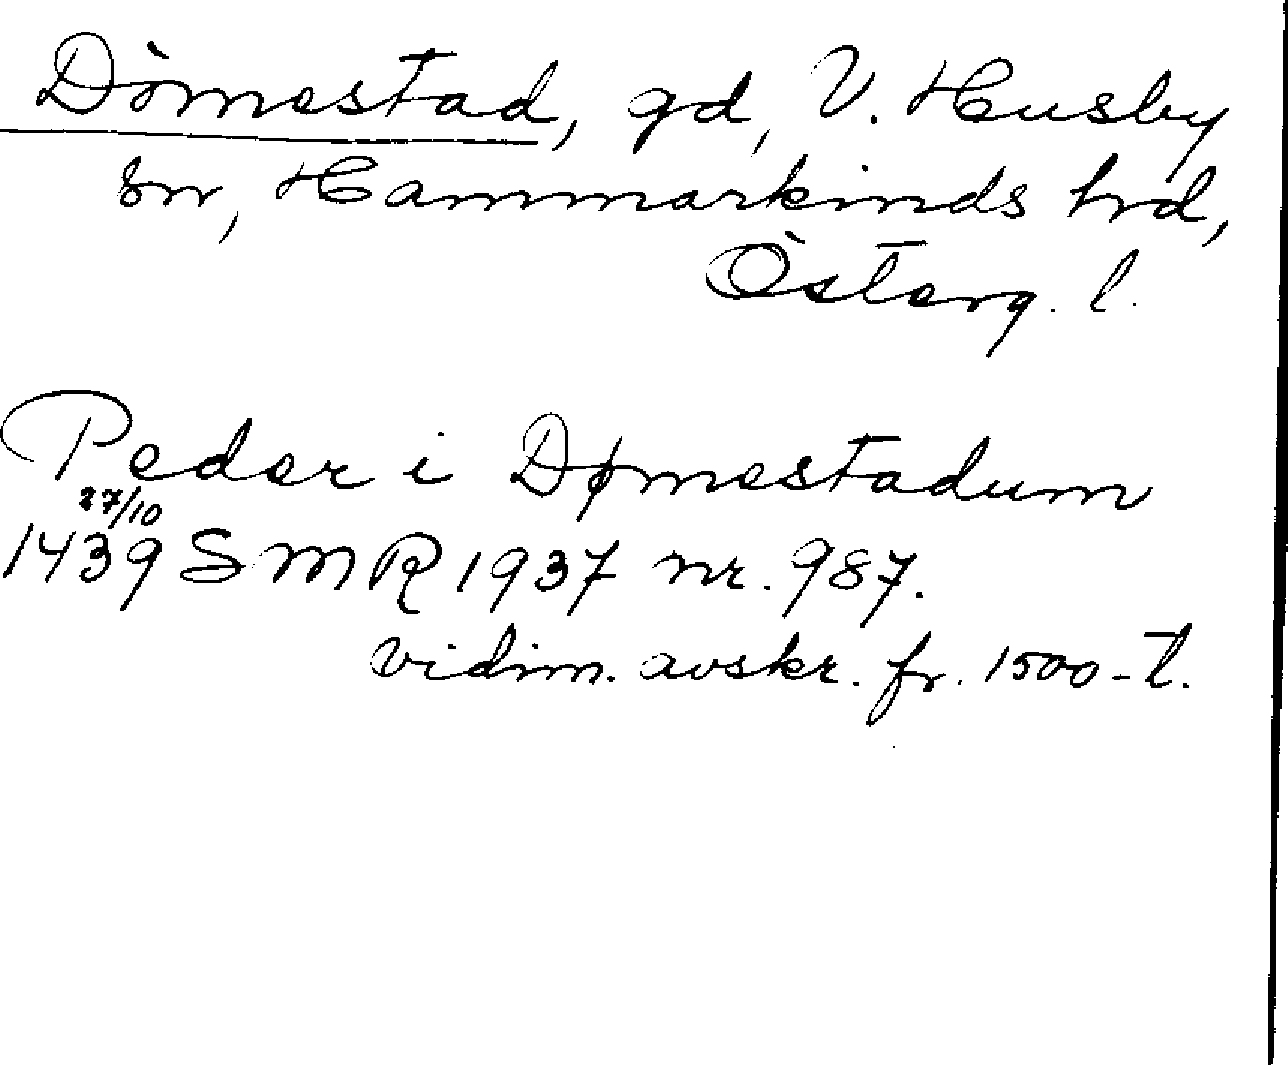 Dömestad, gd, V. Husby
sn, Hammarkinds hrd,
Österg. l.
Peder i Dømestadum
27/10
1439 SMR 1937 nr. 987.
vidim. avskr. fr. 1500-t.